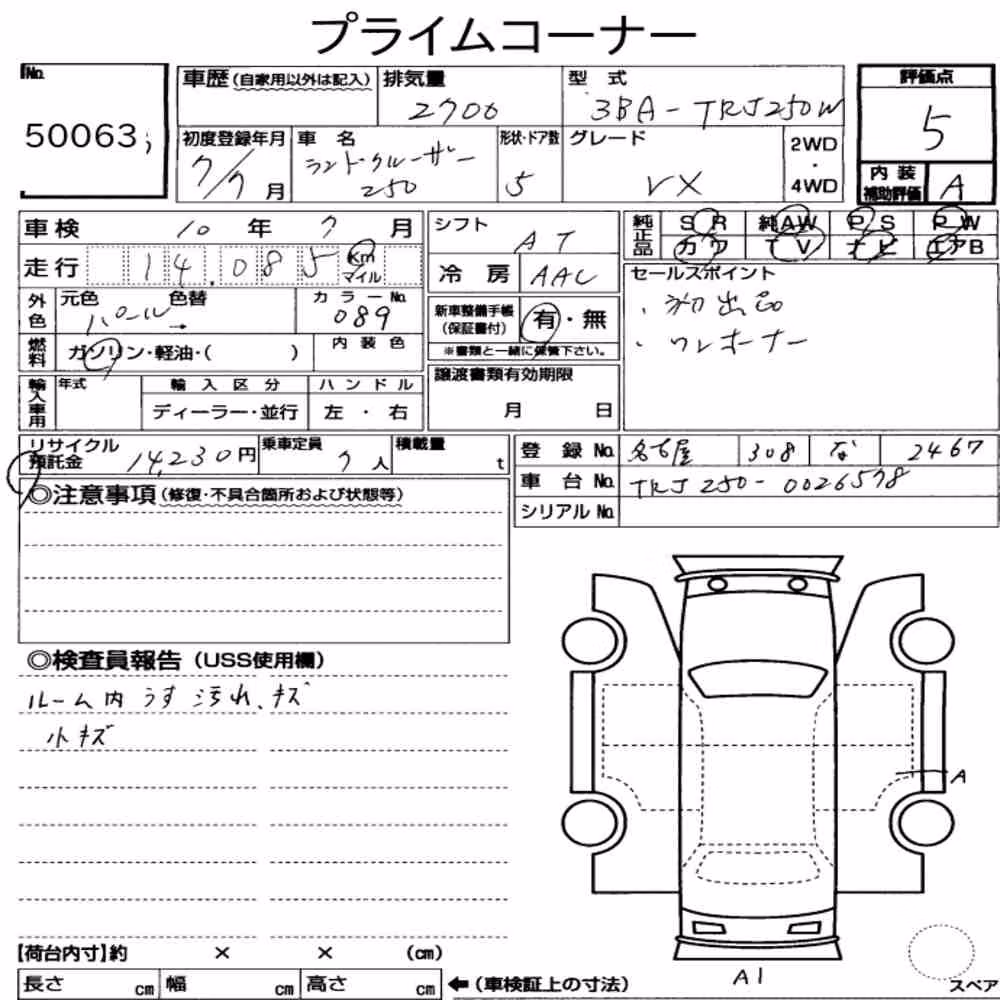 プライムコーナー
No.
50063
車歴(自家用以外は記入) 排気量 2700 型式 3BA-TRJ250W
評価点 5
初度登録年月 7/7月 車名 ランドクルーザー 250 形状・ドア数 5 グレード VX 2WD・4WD
内装補助評価 A
車検 10年 7月
走行 14,085 Km マイル
シフト AT
冷房 AAC
純正品 SR 純AW PS PW
カワ TV ナビ エアB
外色 元色 パール 色替 → カラーNo. 089
燃料 ガソリン・軽油・( ) 内装色
新車整備手帳(保証書付) 有・無
※書類と一緒に保管下さい。
セールスポイント
・初出品
・ワンオーナー
輸入車用 年式 輸入区分 ハンドル
ディーラー・並行 左・右
譲渡書類有効期限
月 日
リサイクル預託金 14,230円 乗車定員 7人 積載量 t
登録No. 名古屋 308 な 2467
車台No. TRJ250-0026578
シリアルNo.
◎注意事項(修復・不具合箇所および状態等)
◎検査員報告(USS使用欄)
ルーム内うす汚れ、キズ
小キズ
A
A1
【荷台内寸】約 × × (cm)
長さ cm 幅 cm 高さ cm ←(車検証上の寸法)
スペア